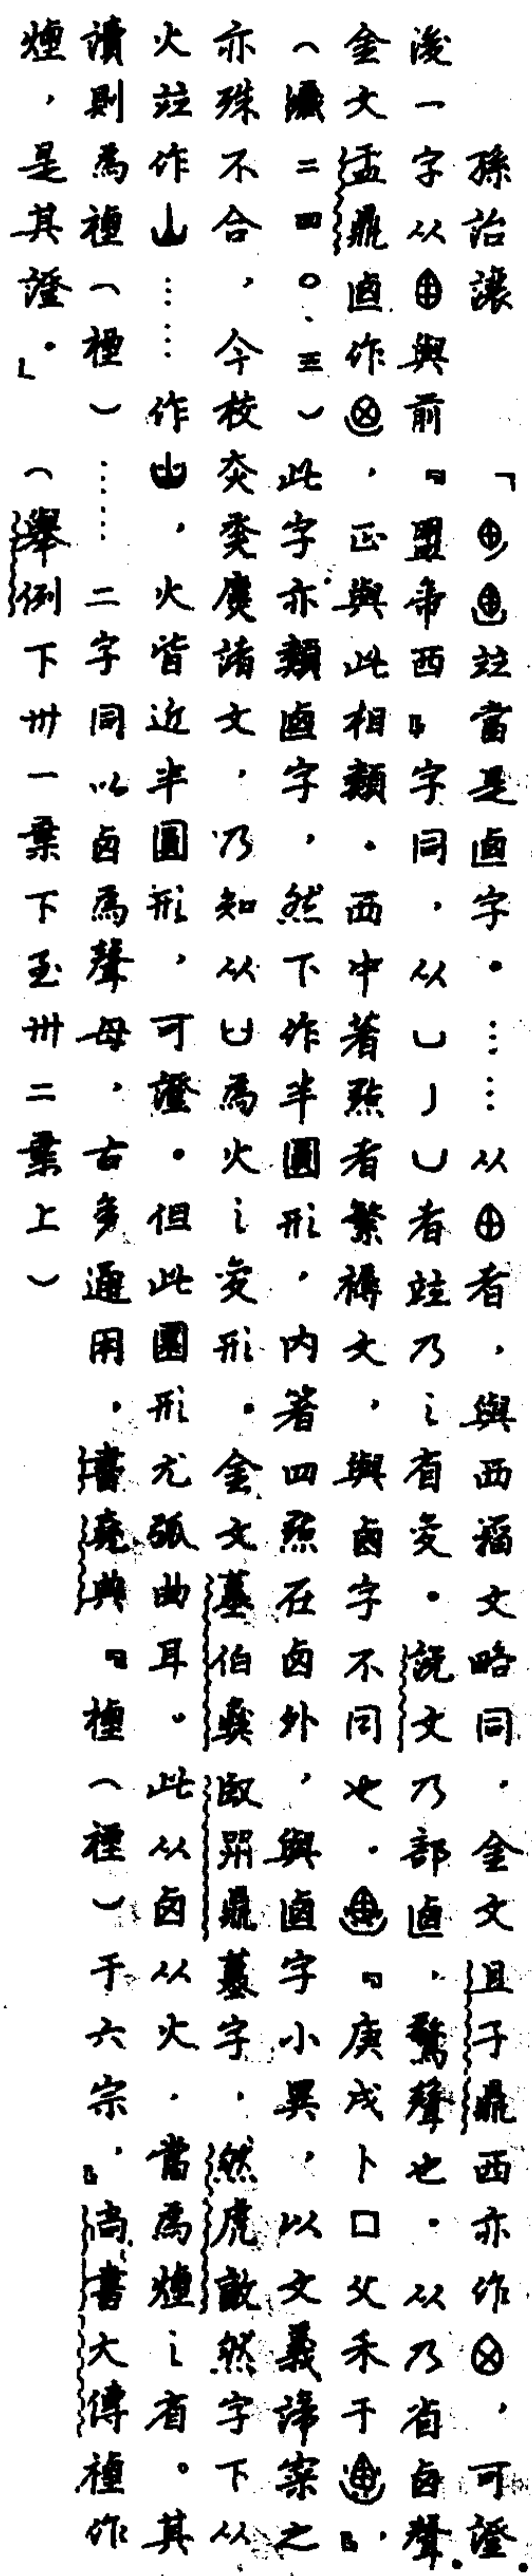 孫詒讓　「𠧟𠧟竝當是𠧟字。……从⊕者，與西籀文略同，金文且子鼎西亦作⊗，可證
後一字从⊕與前『盟帚西』字同，从乚丿乚者竝乃之省變。說文乃部𠧟，驚聲也。从乃省卤聲。
金文盂鼎𠧟作，正與此相類。西中著點者繁縟文，與卤字不同也。『庚戌卜□父禾于』，
（藏二四〇·三）此字亦類𠧟字，然下作半圓形，内著四點在卤外，與𠧟字小異，以文義諦案之
亦殊不合，今校諸文，乃知从凵為火之變形。金文蓋伯彝𠭯鼎字，然虎敦然字下从
火竝作山……作，火皆近半圓形，可證。但此圜形尤弧曲耳。此从卤从火，當為煙之省。其
讀則為禋（𥚨）……二字同以卤為聲母，古多通用。書堯典『禋（𥚨）于六宗』，尚書大傳禋作
煙，是其證。」（舉例下卅一葉下至卅二葉上）